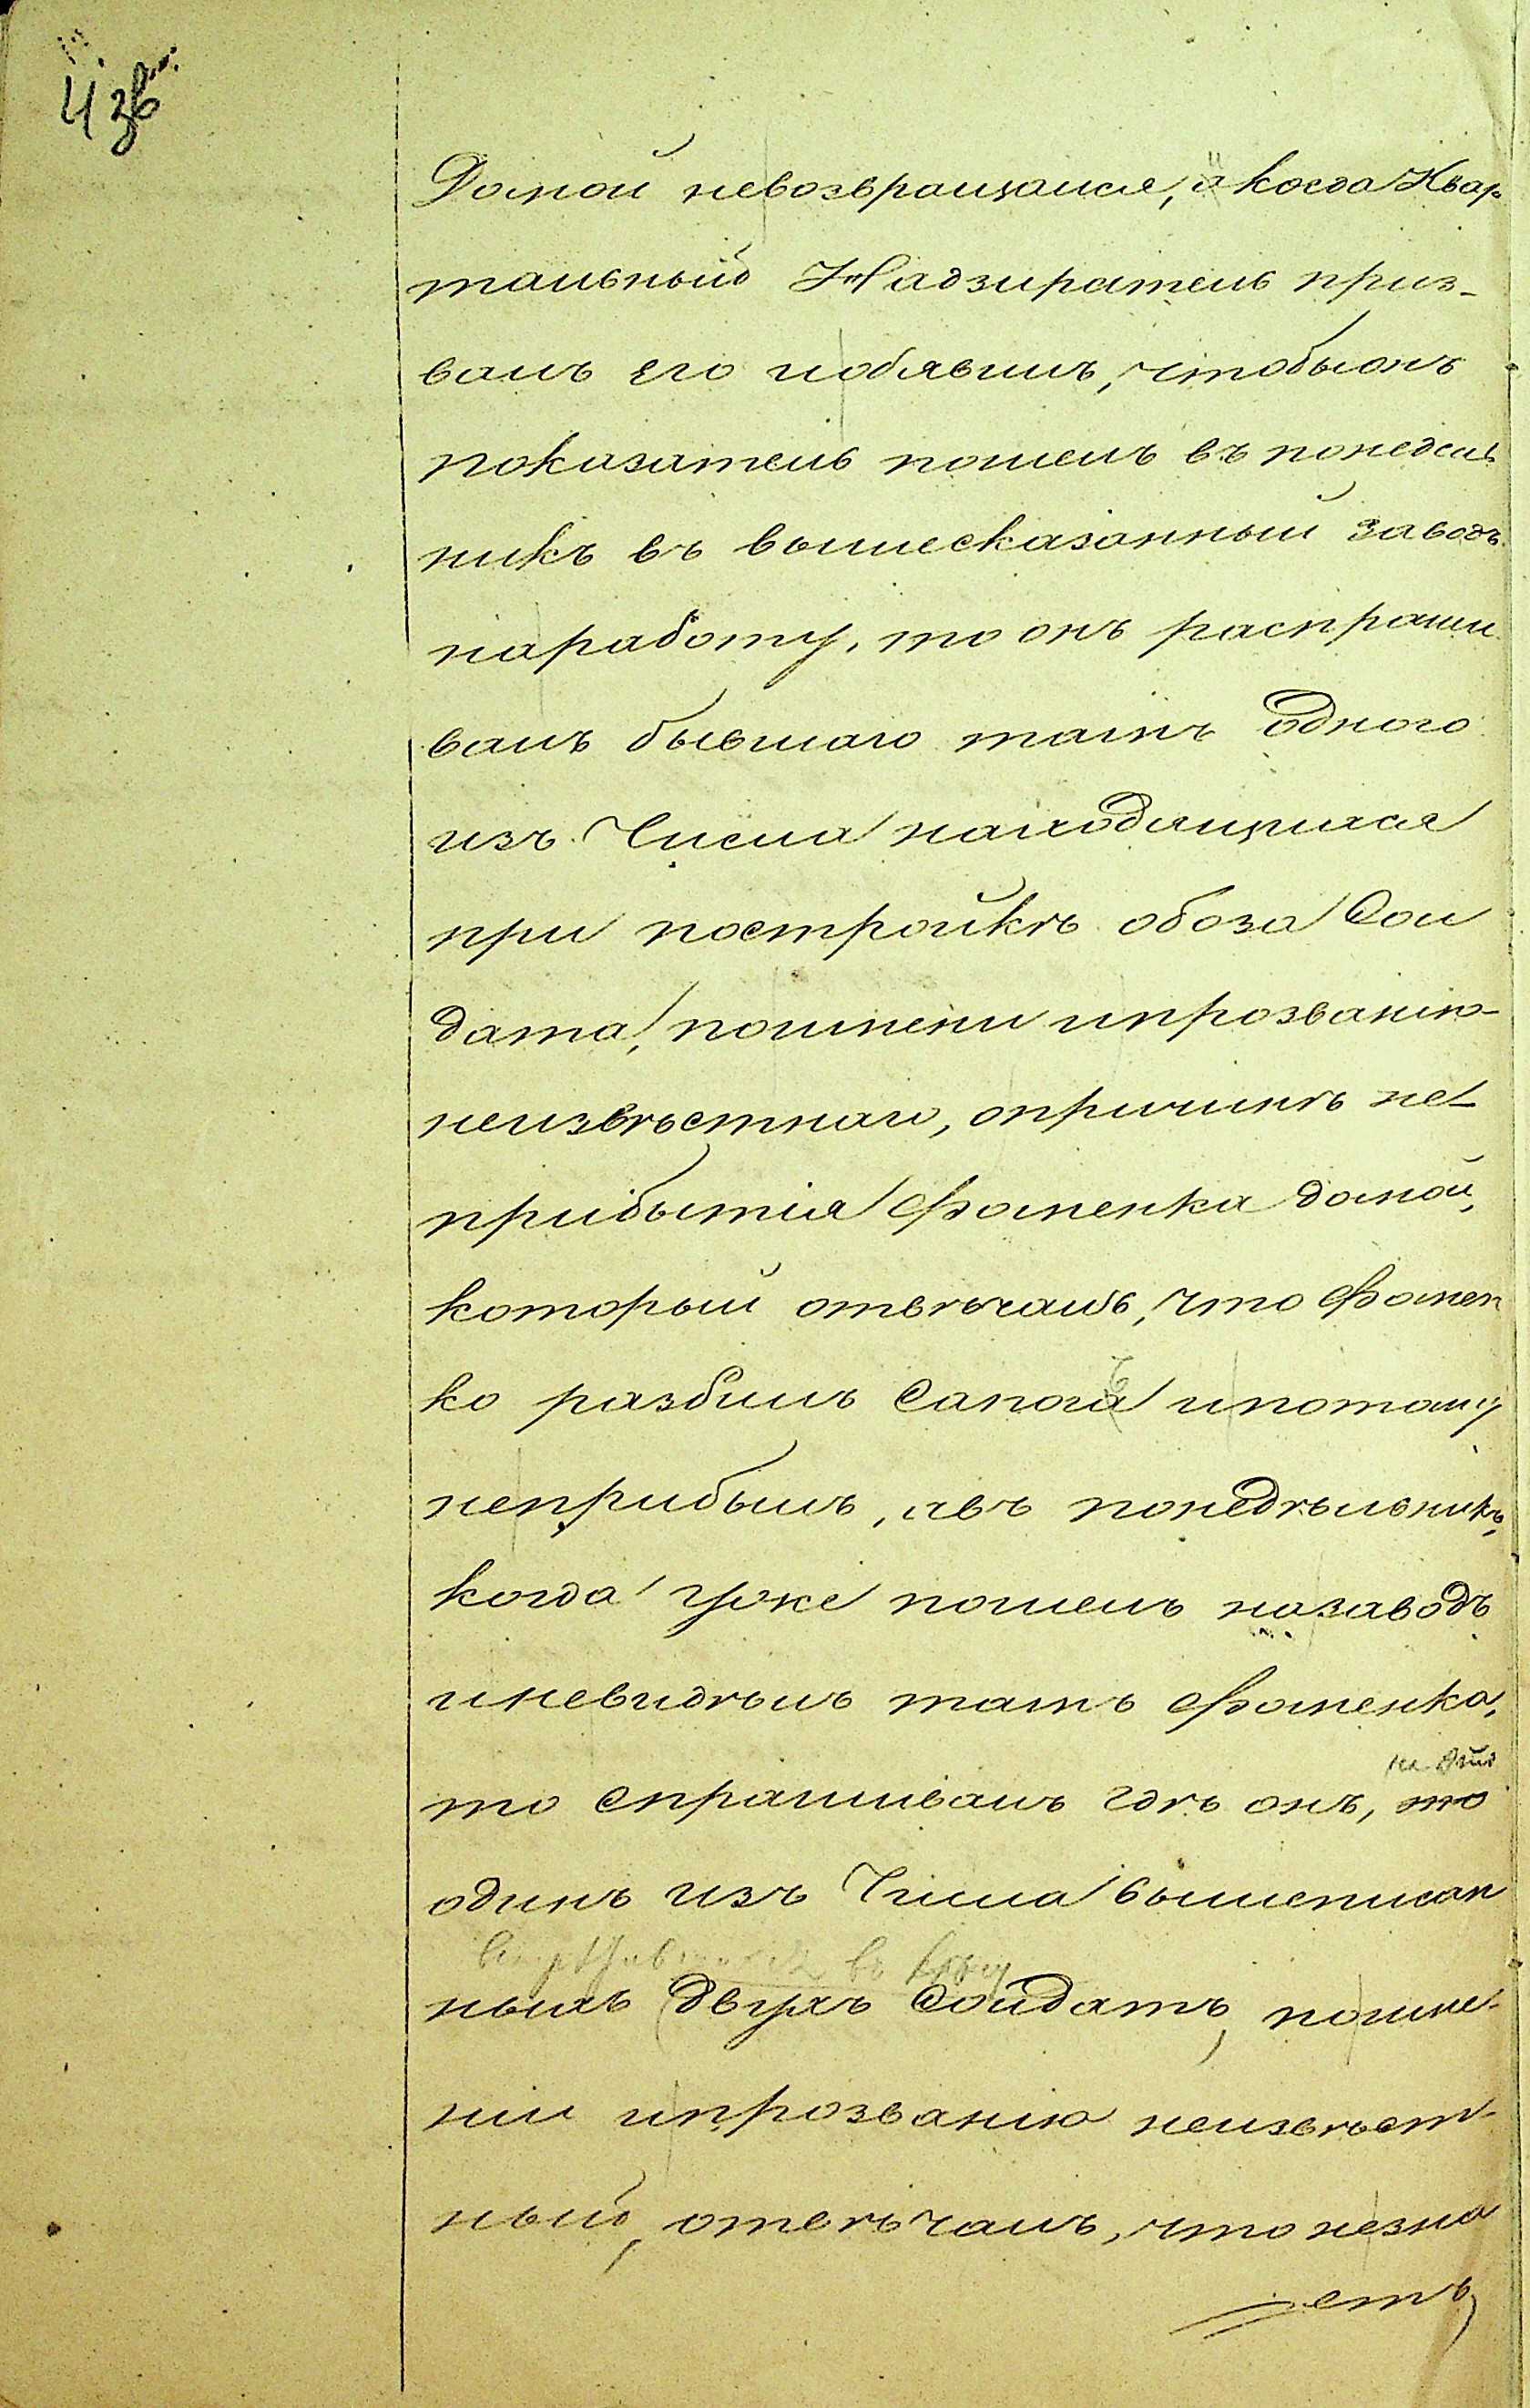 4 зв
Домой невозвращался, а когда Квар
тальный Надзиратель приз-
валъ его иобявилъ, чтобы онъ
показатель пошелъ въ понедель
никъ въ вышесказанный заводъ
наработу, то онъ распраши
валъ бывшаго тамъ одного
изъ Числа находящихся
при постройкѣ обоза Сол
дата, поимени ипрозванію
неизвѣстнаго, опричинѣ не
прибытія Фоменка домой,
который отвѣчалъ, что Фомен
ко разбилъ Сапоги ипотому
неприбылъ, авъ понедѣльникъ,
когда уже пошелъ назаводъ
иневидѣлъ тамъ Фоменка,
то спрашивалъ гдѣ онъ, то
одинъ изъ Числа вышеписан
ныхъ двухъ Солдатъ, поиме-
ни ипрозванію неизвѣст-
ный, отвѣчалъ, что незна
етъ